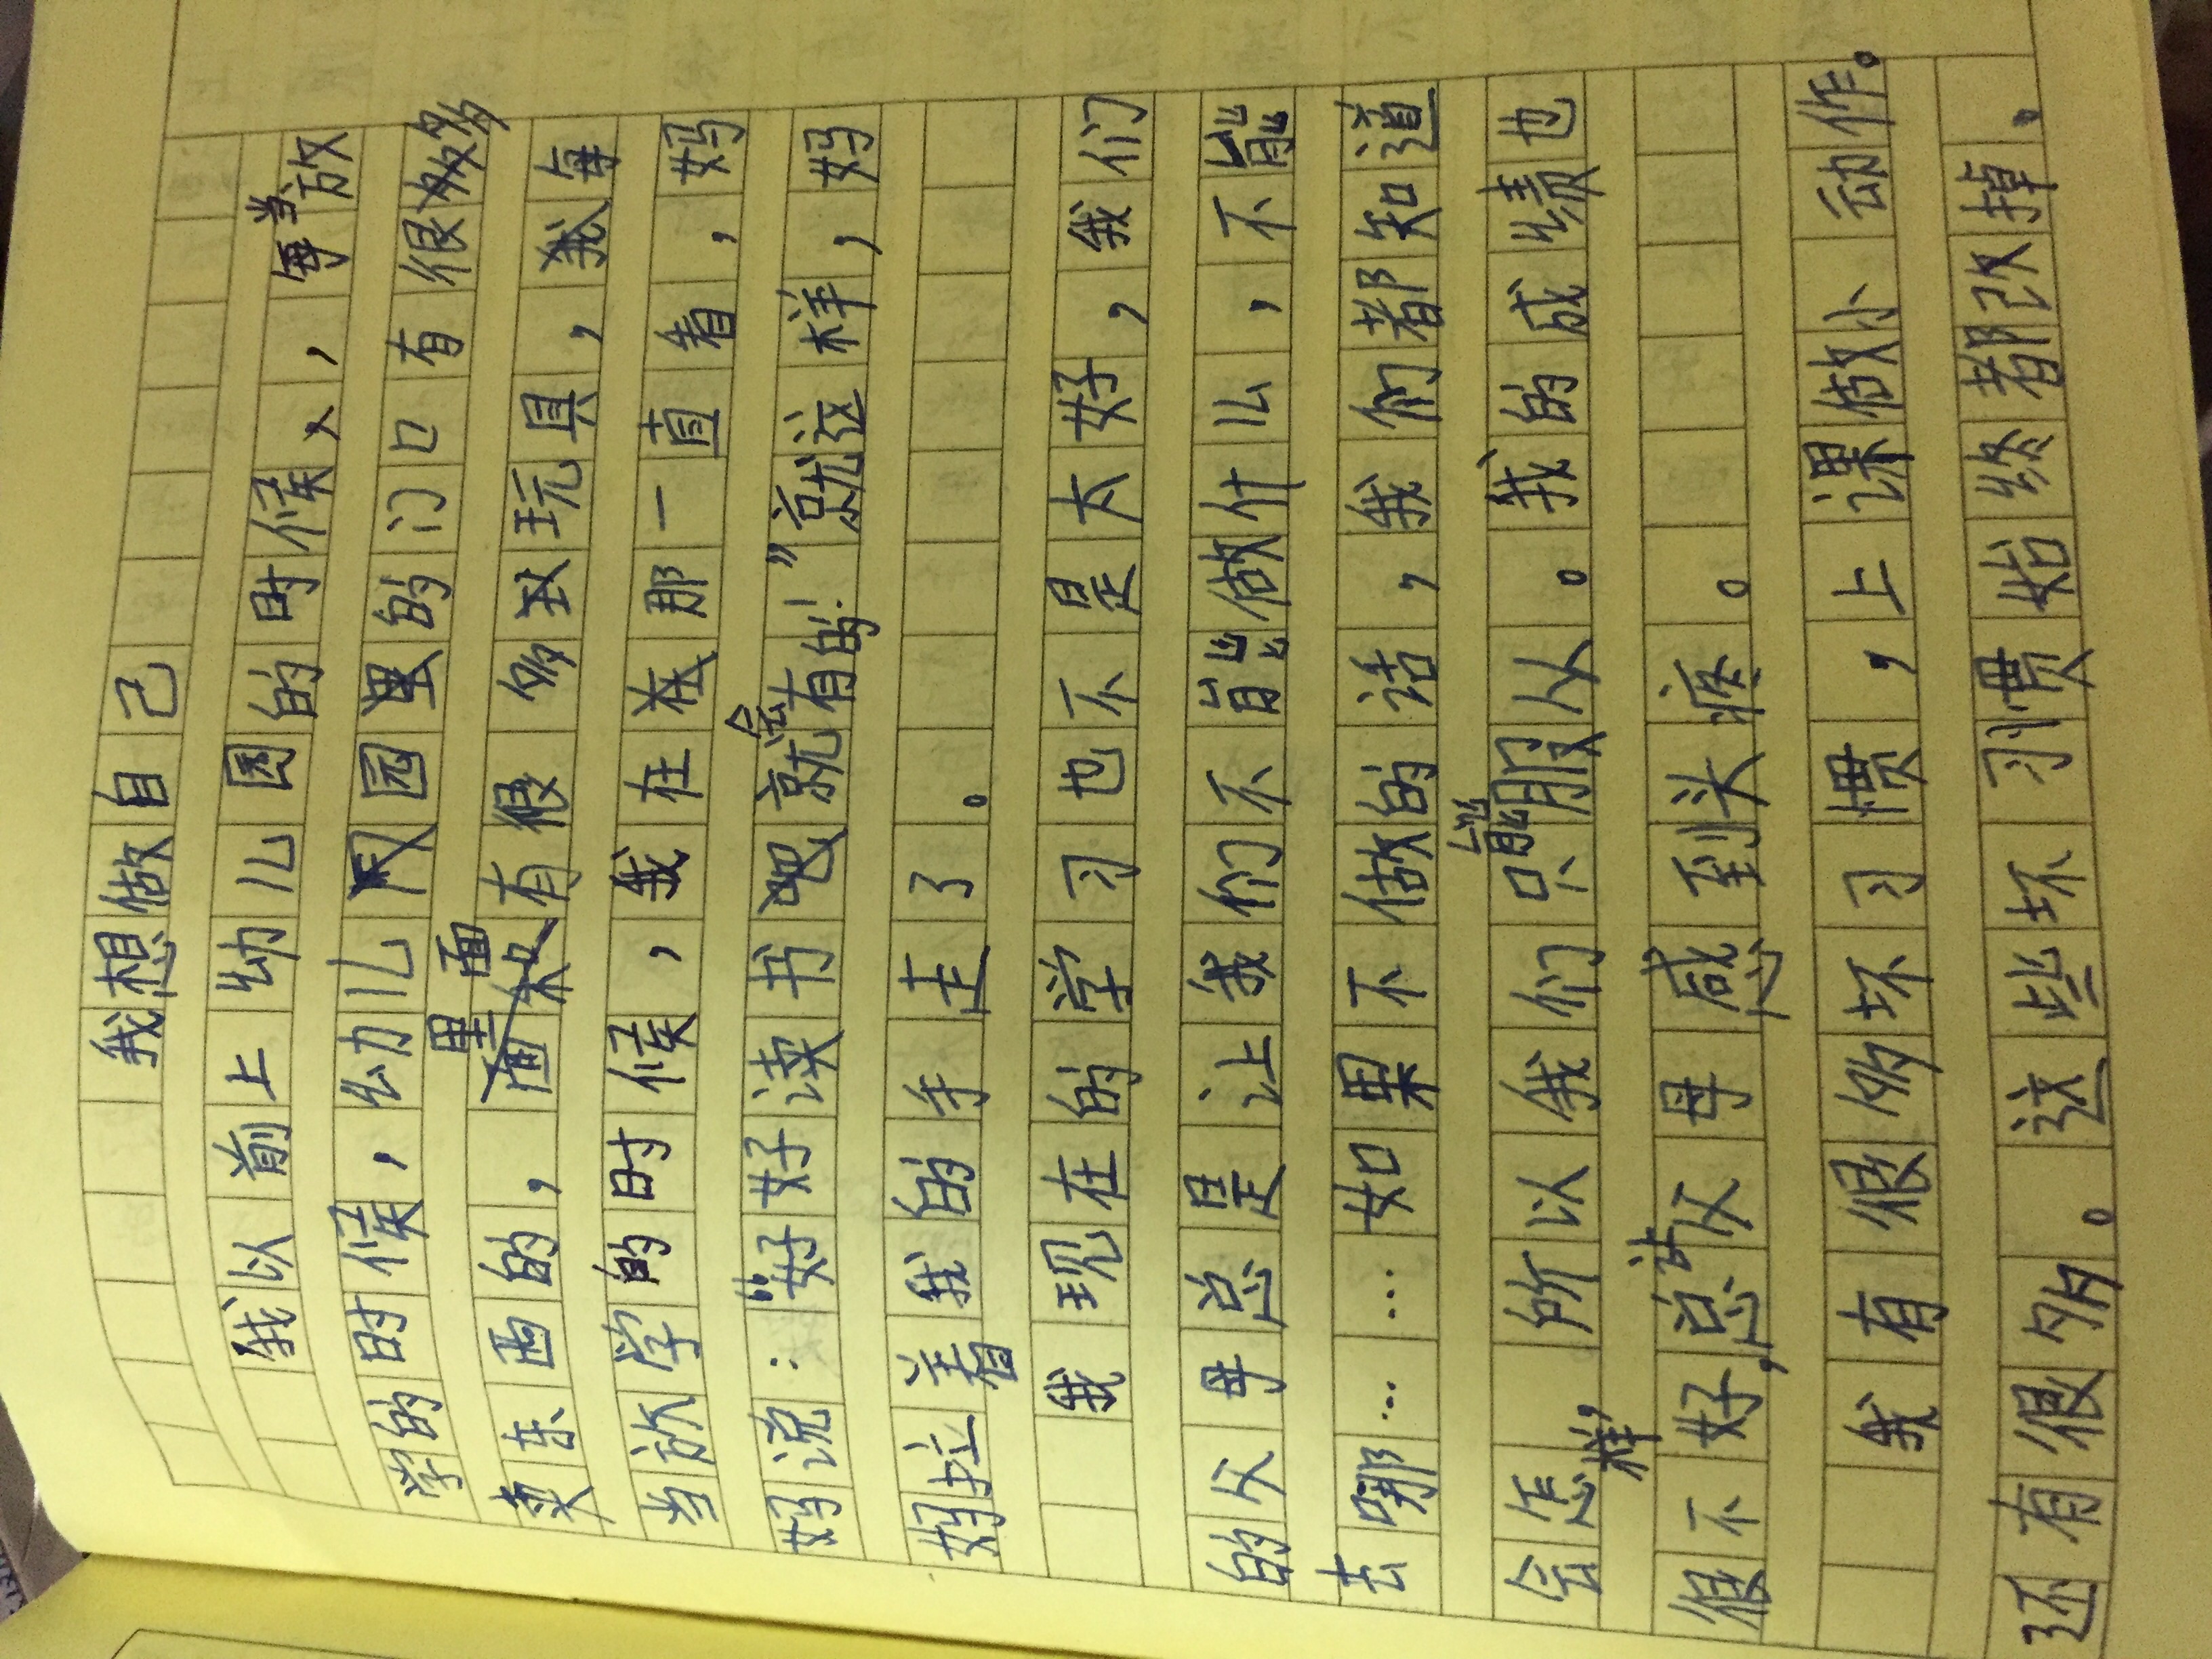 我想做自己
我以前上幼儿园的时候，每当放
学的时候，幼儿园的门口有很多
卖东西的，里面有很多玩具，每
当放学的时候，我在那一直看，妈
妈说：“好好读书就会有的！”就这样，妈
妈拉着我的手走了。
我现在的学习也不是太好，我们
的父母总是让我们不能做什么，不能
去哪……如果不做的话，我们都知道
会怎样，所以我们只能服从。我的成绩也
很不好，总让父母感到头疼。
我有很多坏习惯，上课做小动作。
还有很多。这些坏习惯始终都改掉。